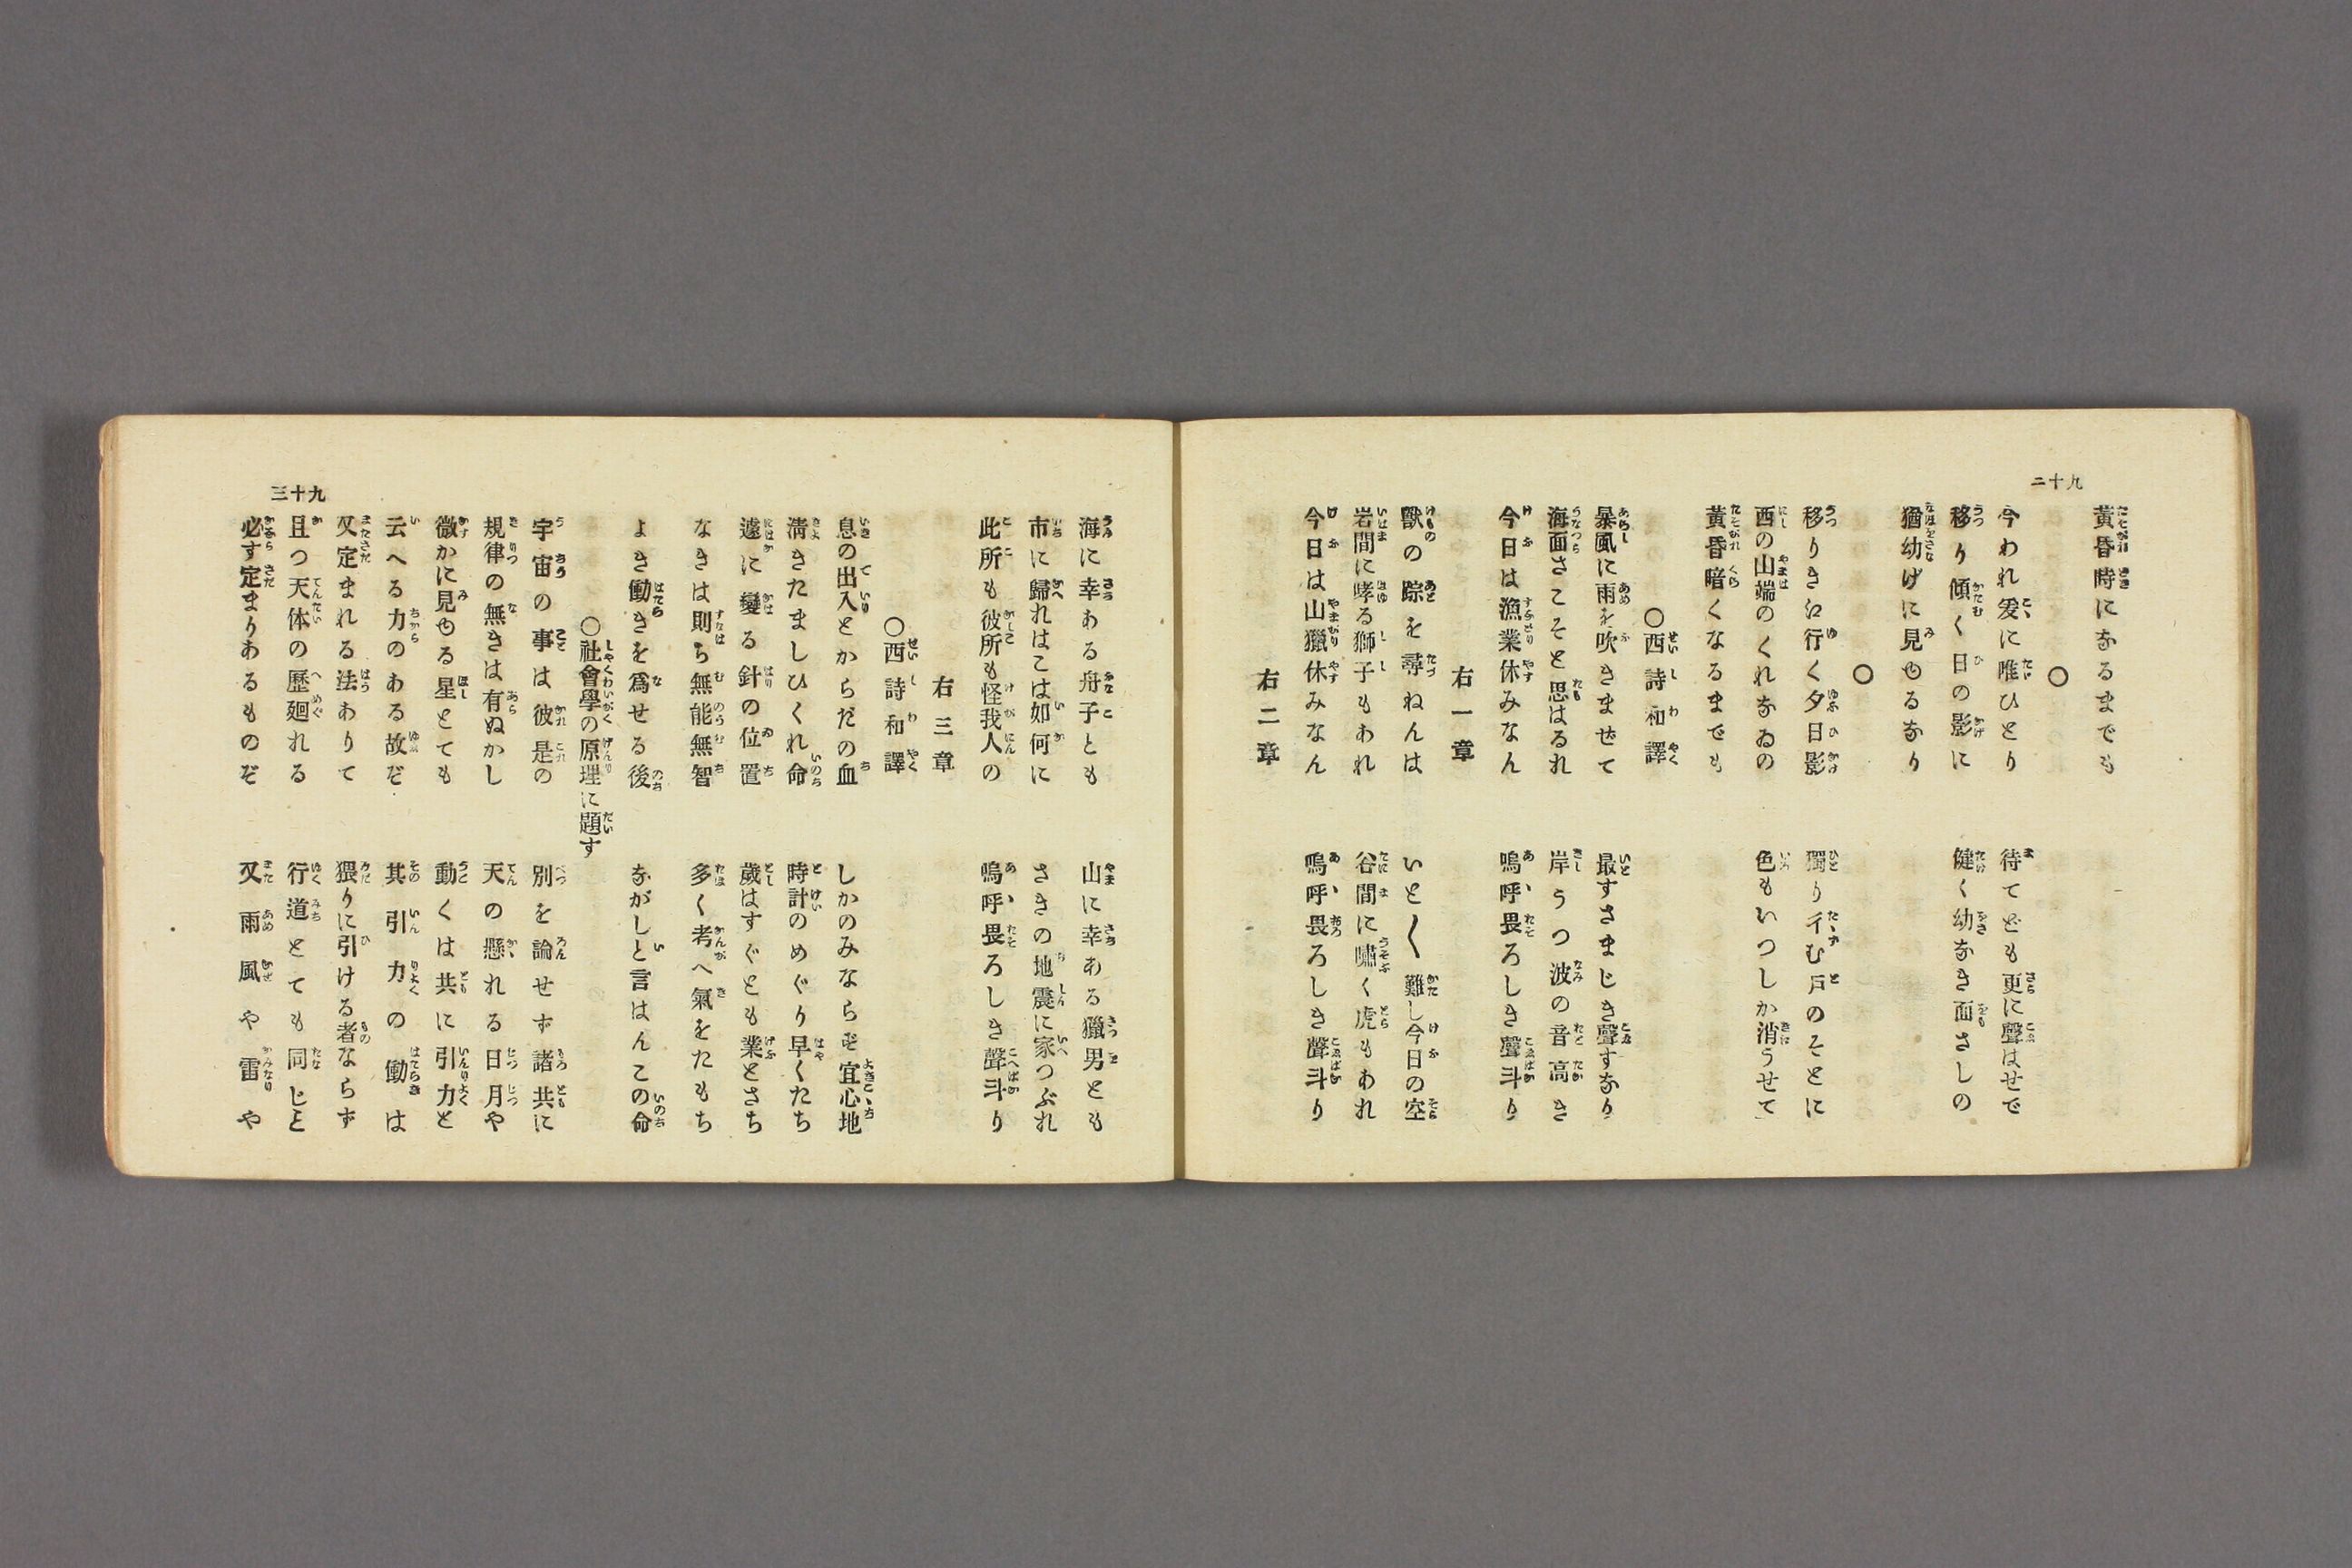 九十二
黄昏時になるまでも
〇
今われ爰に唯ひとり　待てども更に聲はせで
移り傾く日の影に　健く幼なき面さしの
猶幼げに見ゆるなり
〇
移りきに行く夕日影　獨り彳む戸のそとに
西の山端のくれなゐの　色もいつしか消うせて
黄昏暗くなるまでも
〇西詩和譯
暴風に雨を吹きませて　最すさまじき聲すなり
海面さこそと思はるれ　岸うつ波の音高き
今日は漁業休みなん　嗚呼畏ろしき聲斗り
右一章
獸の踪を尋ねんは　いと〱難し今日の空
岩間に哮る獅子もあれ　谷間に嘯く虎もあれ
今日は山獵休みなん　嗚呼畏ろしき聲斗り
右二章
海に幸ある舟子とも　山に幸ある獵男とも
市に歸れはこは如何に　さきの地震に家つぶれ
此所も彼所も怪我人の　嗚呼畏ろしき聲斗り
右三章
〇西詩和譯
息の出入とからだの血　しかのみならず宜心地
淸きたましひくれ命　時計のめぐり早くたち
遽に變る針の位置　歲はすぐとも業とさち
なきは則ち無能無智　多く考へ氣をたもち
よき働きを爲せる後　ながしと言はんこの命
〇社會學の原理に題す
宇宙の事は彼是の　別を論せず諸共に
規律の無きは有ぬかし　天の懸れる日月や
微かに見ゆる星とても　動くは共に引力と
云へる力のある故ぞ　其引力の働は
又定まれる法ありて　猥りに引ける者ならず
且つ天体の歷廻れる　行道とても同じこと
必す定まりあるものぞ　又雨風や雷や
九十三